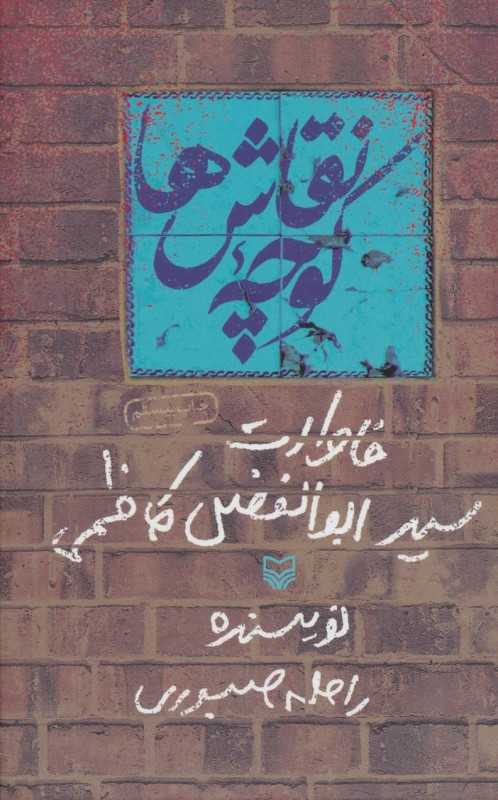 کوچهٔ نقاش‌ها
خاطرات
سید ابوالفضل کاظمی
نویسنده
راحله صبوری